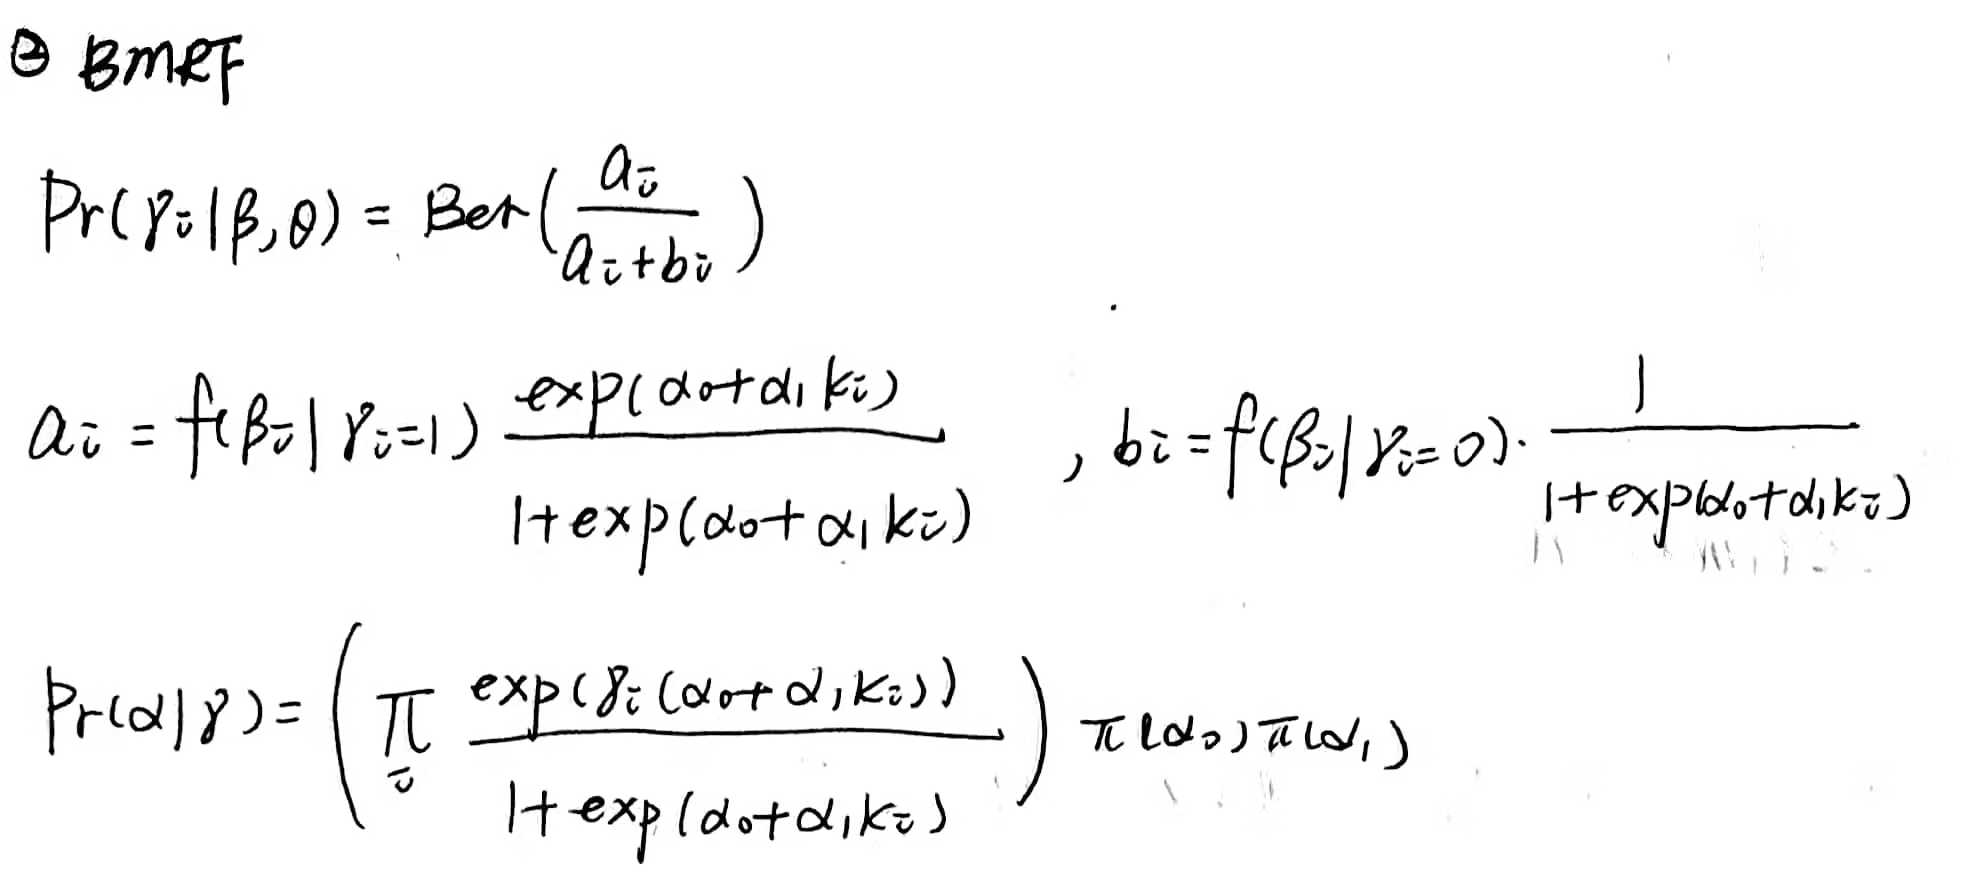 ② BMRF
Pr(γᵢ|β,θ) = Ber(aᵢ/(aᵢ+bᵢ))
aᵢ = f(βᵢ|γᵢ=1) exp(α₀+α₁kᵢ)/(1+exp(α₀+α₁kᵢ)) , bᵢ = f(βᵢ|γᵢ=0)· 1/(1+exp(α₀+α₁kᵢ))
Pr(α|γ) = (∏ᵢ exp(γᵢ(α₀+α₁kᵢ))/(1+exp(α₀+α₁kᵢ))) π(α₀)π(α₁)